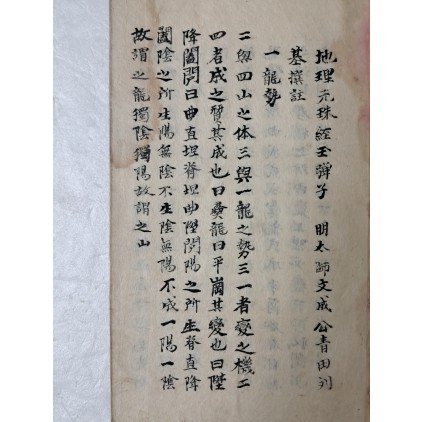 地理元珠經玉彈子　明太師文成公青田刘
基撰註
一龍勢
二與四山之体三與一龍之勢三一者变之機二
四者成之質其成也曰㬪龍曰平崗其變也曰陞
降闔闢曰曲直埋脊埋曲陞闢陽之所生脊直降
闔陰之所生陽無陰不生陰無陽不成一陽一陰
故謂之龍獨陰獨陽故謂之山